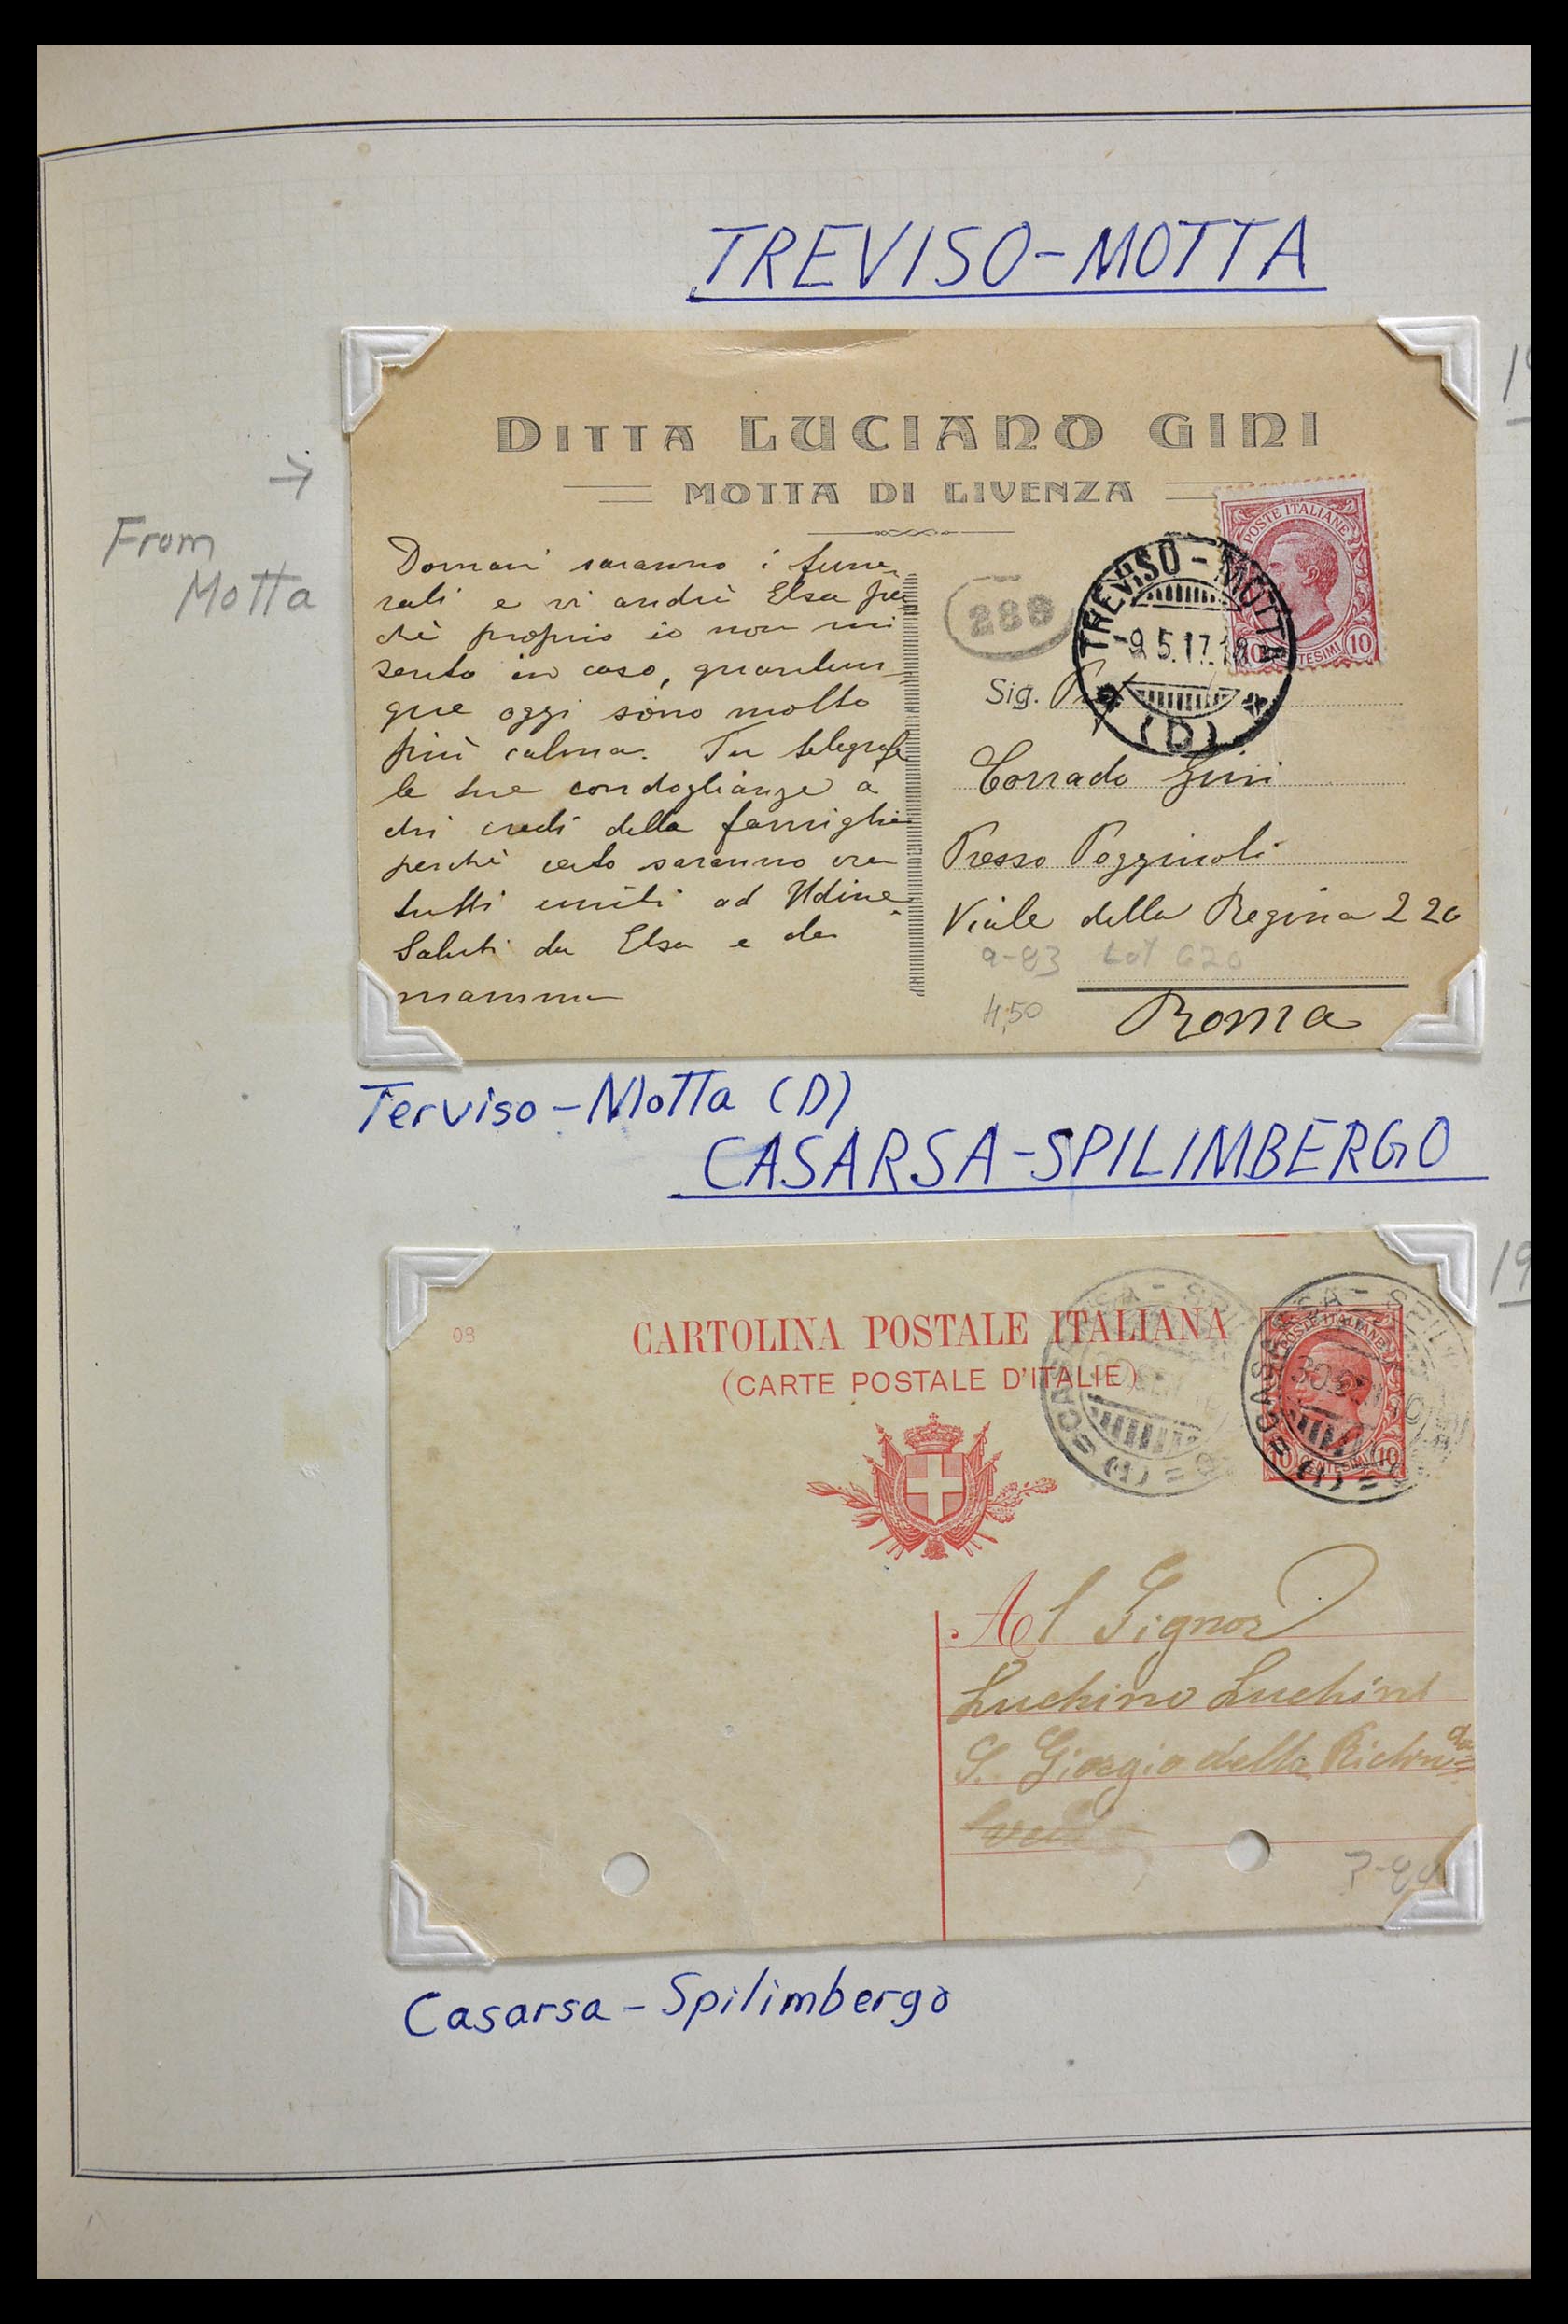 TREVISO-MOTTA
19
→
From
Motta
DITTA LUCIANO GINI
MOTTA DI LIVENZA
Domani saranno i fune-
rali e vi andrà Elsa per
chè proprio io non mi
sento in caso, quantun-
que oggi sono molto
più calma. Tu telegrafa
le tue condoglianze a
chi credi della famiglia
perchè certo saranno ora
tutti uniti ad Udine.
Saluti da Elsa e da
mamma
288
POSTE ITALIANE
10 CENTESIMI 10
TREVISO-MOTTA
-9.5.17.18
(D)
Sig.
Corrado Gini
Presso Pogginoli
Viale della Regina 220
9-83 Lot 620
4,50
Roma
Terviso-Motta (D)
CASARSA-SPILIMBERGO
19
08
CARTOLINA POSTALE ITALIANA
(CARTE POSTALE D'ITALIE)
CASARSA - SPI
(1)
POSTE ITALIANE
10 CENTESIMI 10
CASARSA - SPIL
30.
(1)
Al Signor
Luchino Luchini
S. Giorgio della Richinvda
Casarsa-Spilimbergo